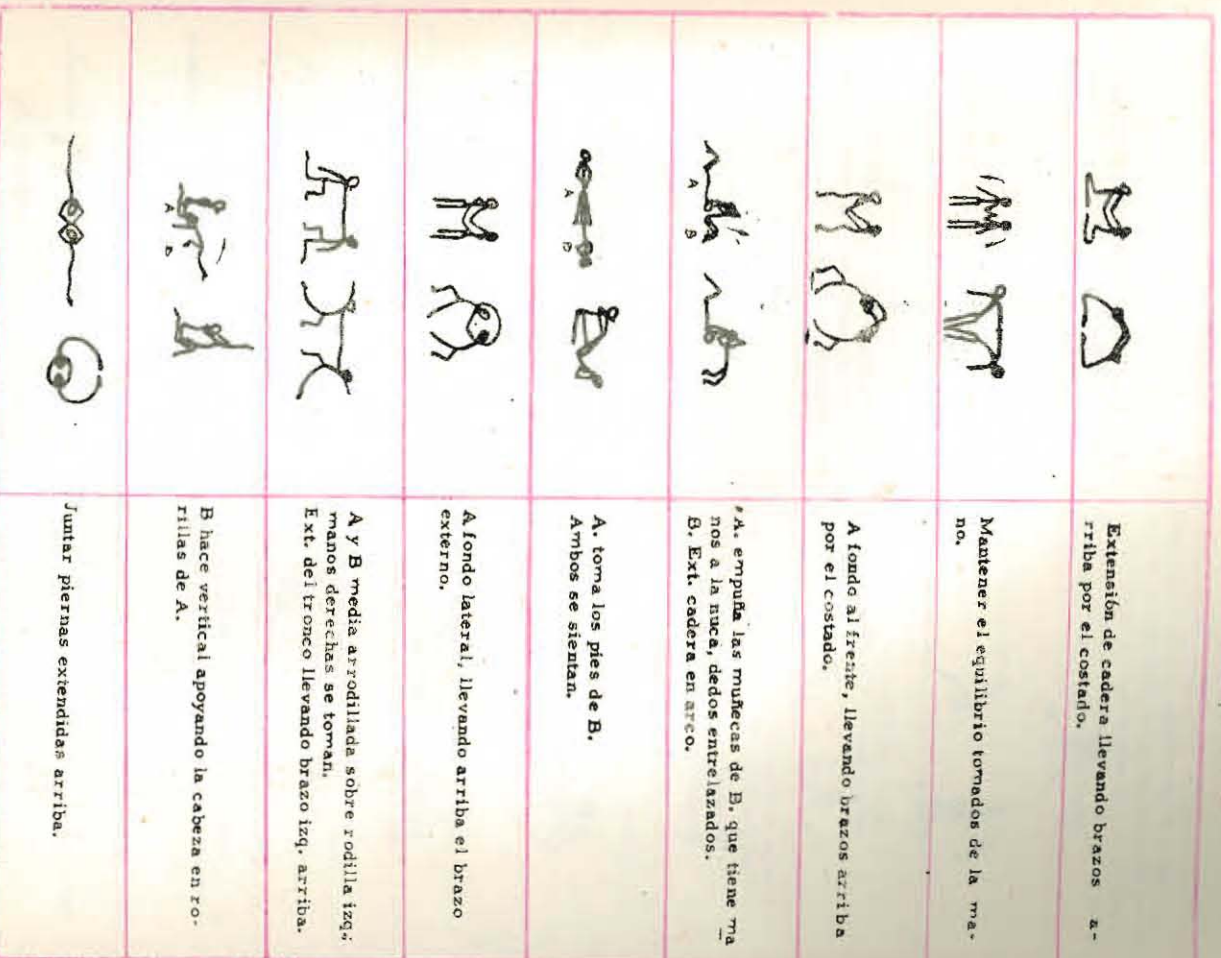 Extensión de cadera llevando brazos a-
rriba por el costado.
Mantener el equilibrio tomados de la ma-
no.
A fondo al frente, llevando brazos arriba
por el costado.
A B
A. empuña las muñecas de B. que tiene ma
nos a la nuca, dedos entrelazados.
B. Ext. cadera en arco.
A B
A. toma los pies de B.
Ambos se sientan.
A fondo lateral, llevando arriba el brazo
externo.
A y B media arrodillada sobre rodilla izq.;
manos derechas se toman.
Ext. del tronco llevando brazo izq. arriba.
A B
B hace vertical apoyando la cabeza en ro-
rillas de A.
Juntar piernas extendidas arriba.